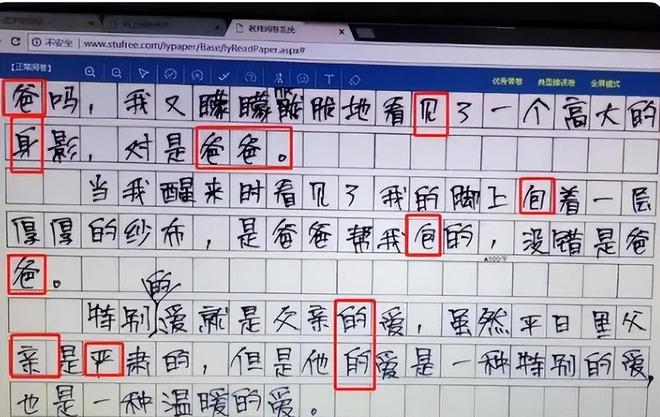 教辅阅卷系统
不安全 | www.stufree.com/lypaper/Base/lyReadPaper.aspx#
【正常阅卷】
优秀答卷 典型错误卷 全屏模式
爸吗，我又矇矇眬眬地看见了一个高大的
身影，对是爸爸。
当我醒来时看见了我的脚上包着一层
厚厚的纱布，是爸爸帮我包的，没错是爸
▲100字
爸。
的
特别爱就是父亲的爱，虽然平日里父
亲是严肃的，但是他的爱是一种特别的爱，
也是一种温暖的爱。